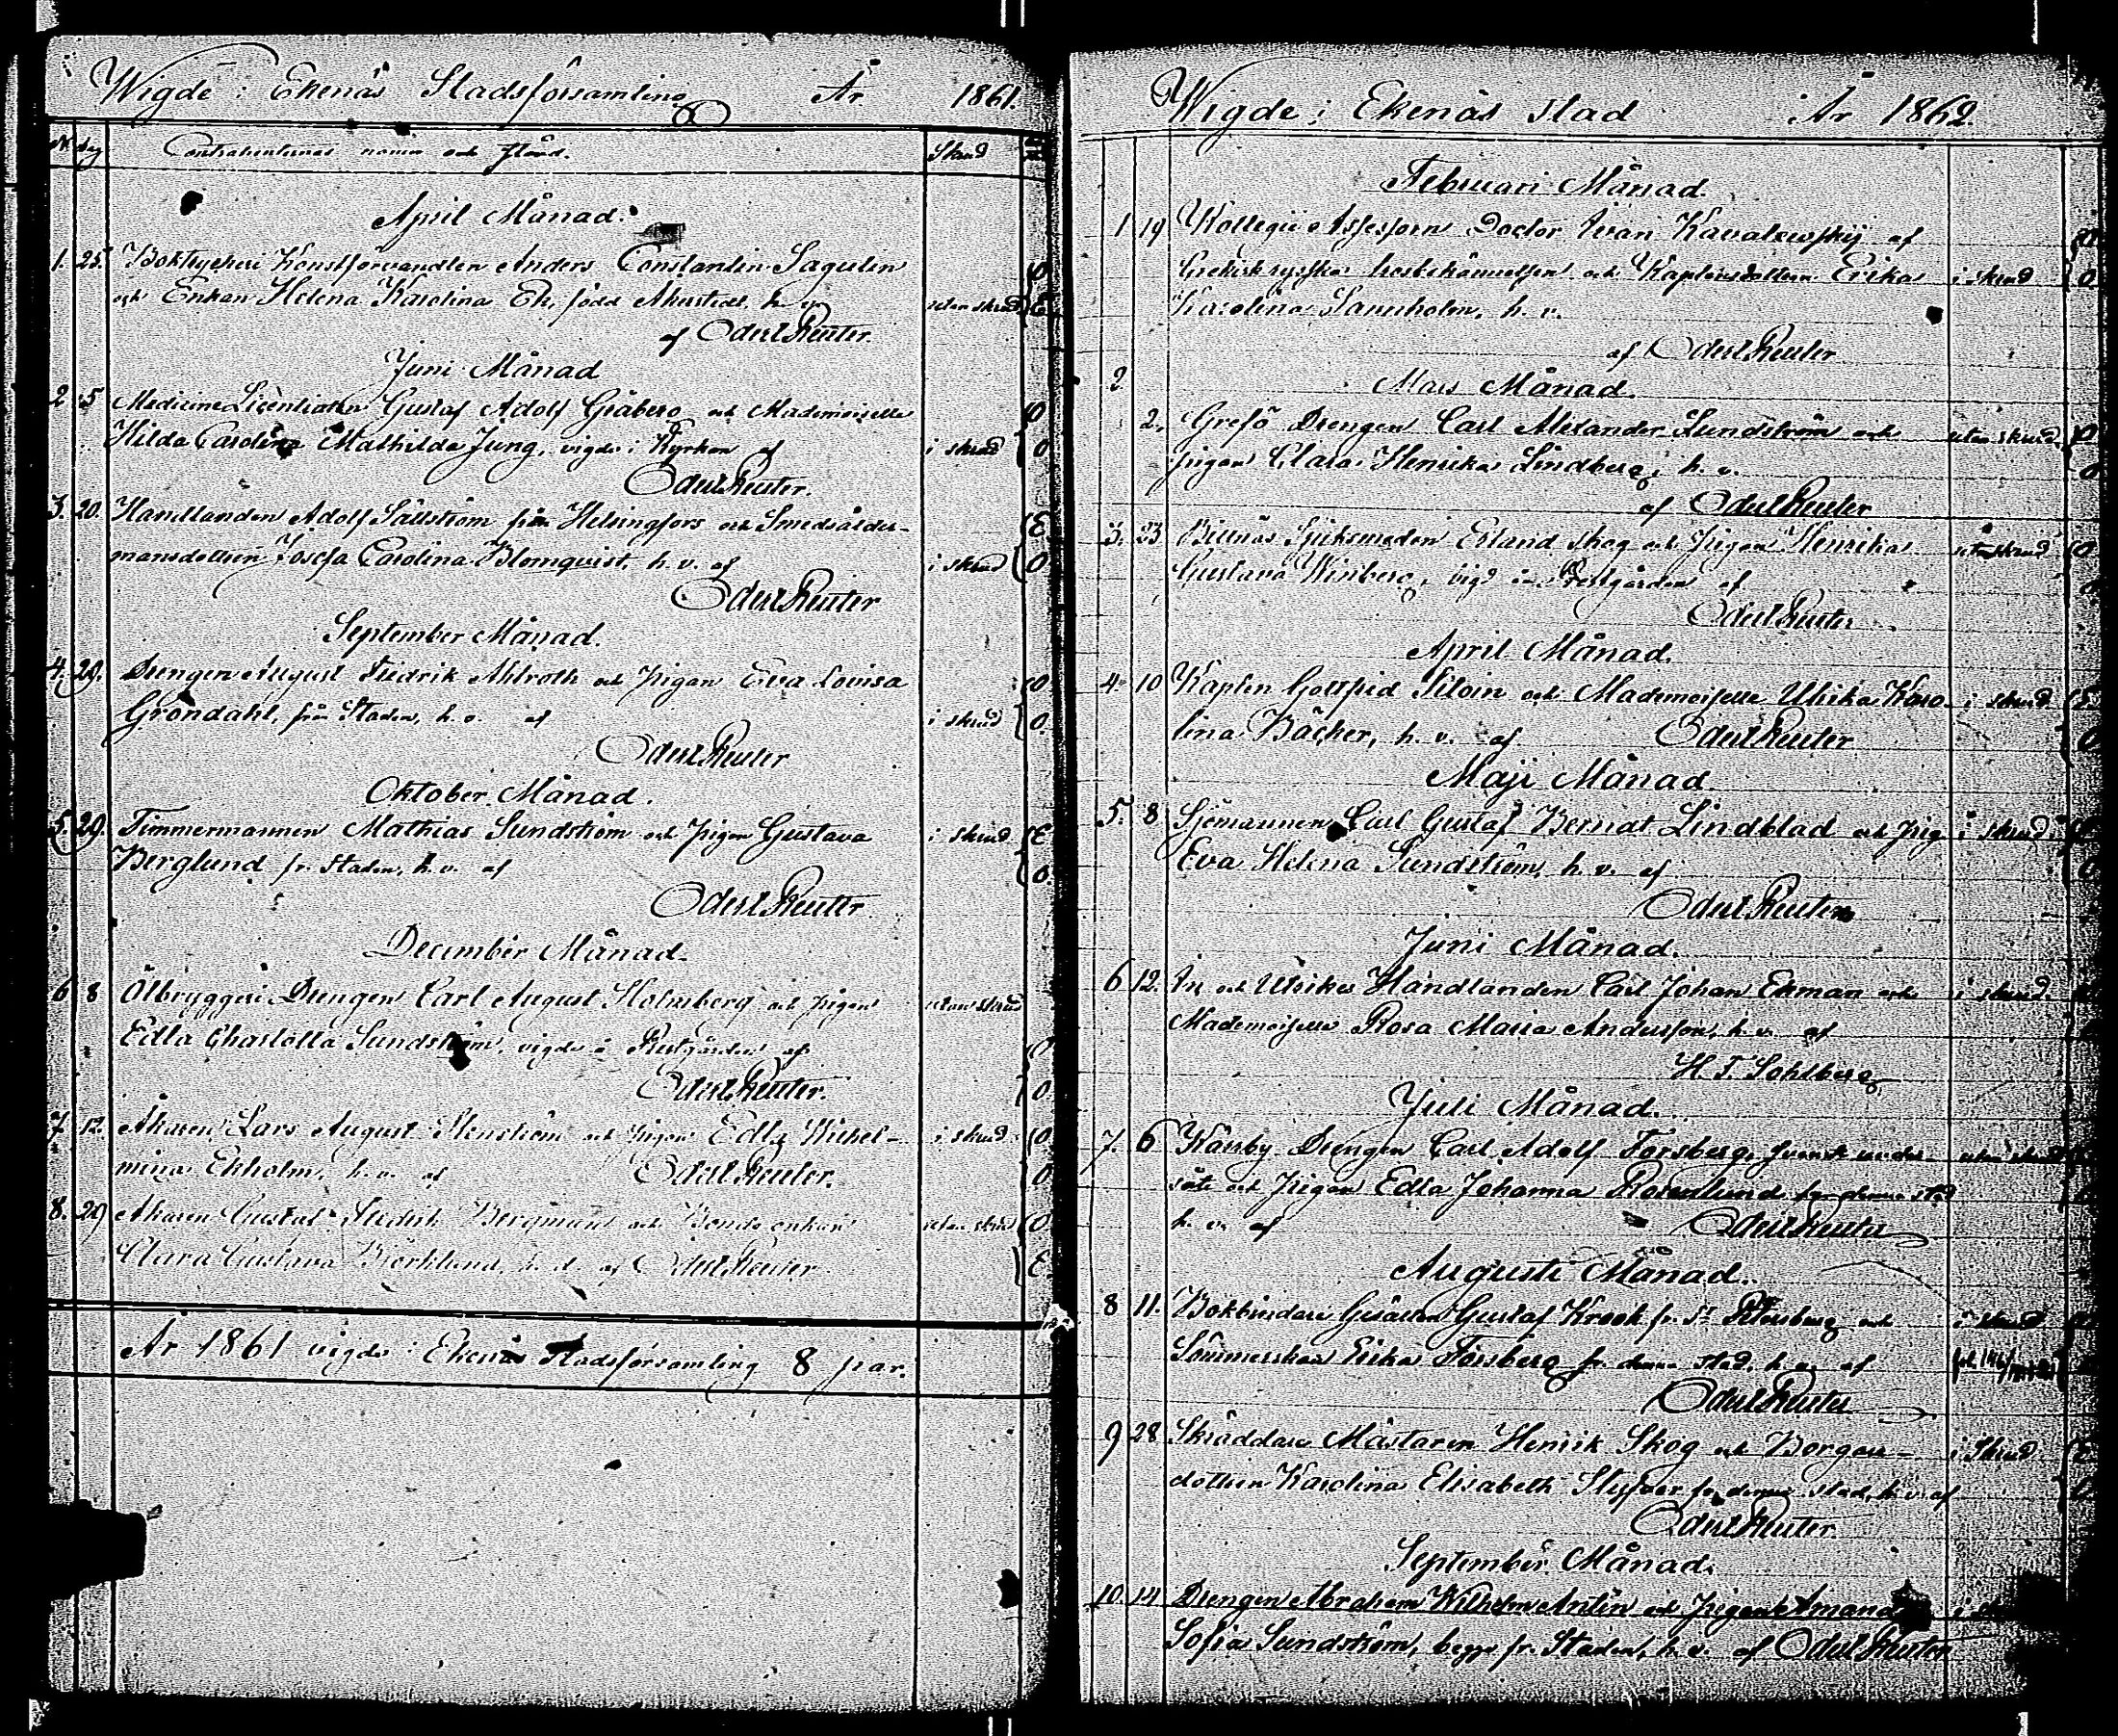 Wigde i Ekenäs Stadsförsamling År 1861.
N dag Contrahenternas namn och stånd. Skrud
April Månad.
1. 25. Boktryckeri Konstförvandten Anders Constantin Sagulin
och Enkan Helena Karolina Ek, född Akerstedt, h. v. utan skrud
af Odert Reuter.
Juni Månad
2 5 Medicine Licentiaten Gustaf Adolf Gråberg och Mademoiselle
Hilda Carolina Mathilda Jung, vigde i Kyrkan af i skrud O
Odert Reuter.
3. 20. Handlanden Adolf Sällström från Helsingfors och Smedsålder- E
mansdottren Josefa Carolina Blomqvist, h. v. af i skrud O
Odert Reuter
September Månad.
4. 29. Drengen August Fredrik Ahlroth och Pigan Eva Lovisa O
Gröndahl, från Staden, h. v. af i skrud O.
Odert Reuter
Oktober Månad.
5. 29. Timmermannen Mathias Sundström och Pigan Gustava i skrud E
Berglund fr. Staden, h. v. af O.
Odert Reuter
December Månad.
6 8 Ölbryggeri Drengen Carl August Holmberg och Pigan utan skrud
Edla Charlotta Sundström, vigde i Prestgården af O
Odert Reuter. O
7 12. Åkaren Lars August Stenström och Pigan Edla Wilhel- i skrud O
mina Ekholm, h. v. af Odert Reuter. O
8. 29 Åkaren Gustaf Fredrik Bergman och Bonde enkan utan skrud O
Clara Gustava Björklund, h. v. af Odert Reuter E
År 1861 vigde i Ekenäs Stadsförsamling 8 par.
Wigde i Ekenäs Stad År 1862.
Februari Månad.
1 19 Kollegii Assessorn Doctor Ivan Kavalewskij af
Grekisk ryska trosbekännelsen och Kaptensdottren Erika i skrud O
Karolina Lannholm, h. v.
af Odert Reuter
2 Mars Månad.
2. Grefö Drengen Carl Alexander Lundström och utan skrud O
Pigan Clara Henrika Lindberg, h. v. O
af Odert Reuter
3. 23 Billnäs Spiksmeden Erland Skog och Pigan Henrika utan skrud O
Gustava Winberg, vigd i Prestgården af
Odert Reuter
April Månad.
4 10 Kapten Gottfrid Siloin och Mademoiselle Ulrika Karo- i skrud E
lina Bäcker, h. v. af Odert Reuter O
Maji Månad
5. 8 Sjömannen Carl Gustaf Berndt Lindblad och Pig i skrud
Eva Helena Sundström, h. v. af
Odert Reuter
Juni Månad.
6 12. In och Utrikes Handlanden Carl Johan Ekman och i skrud.
Mademoiselle Rosa Maria Andersson, h. v. af
H. T. Sohlberg
Juli Månad.
7. 6 Drengen Carl Adolf Forsberg, Svensk under- utan skrud
såte och Pigan Edla Johanna Rosenlund fr. denna stad
h. v. af Odert Reuter
Augusti Månad.
8 11. Bokbindare Gesällen Gustaf Krook fr. St Petersburg och i skrud
Sömmerskan Erika Forsberg fr. denna stad, h. v. af
Odert Reuter
9 28 Skräddare Mästaren Henrik Skog och Borgare- i Skrud. E
dottren Karolina Elisabeth Styfver fr. denna stad, h. v. af
Odert Reuter
September Månad.
10. 14 Drengen Abraham Wilhelm Antin och Pigan Amanda
Sofia Sundström, begge fr. Staden, h. v. af Odert Reuter